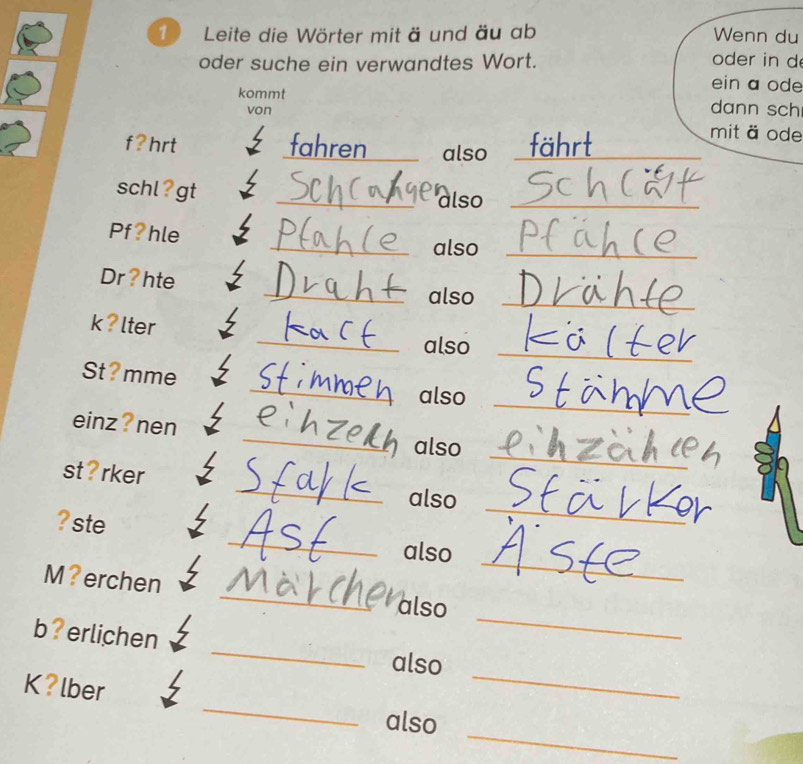 1 Leite die Wörter mit ä und äu ab
oder suche ein verwandtes Wort.
Wenn du
oder in de
ein a ode
dann sch
mit ä ode
kommt
von
f?hrt fahren also fährt
schl?gt Schlahgen also Schlät
Pf?hle Pfahle also Pfähle
Dr?hte Draht also Drähte
k?lter kalt also kälter
St?mme Stimmen also Stämme
einz?nen einzeln also einzählen
st?rker Stark also Stärker
?ste Ast also Äste
M?erchen Märchen also
b?erlichen also
K?lber also